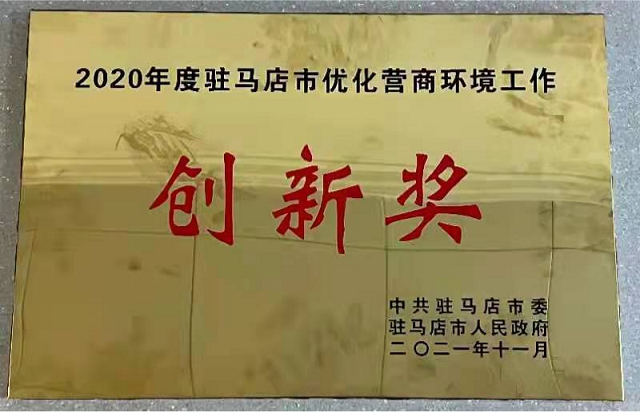 2020年度驻马店市优化营商环境工作
创新奖
中共驻马店市委
驻马店市人民政府
二〇二一年十一月